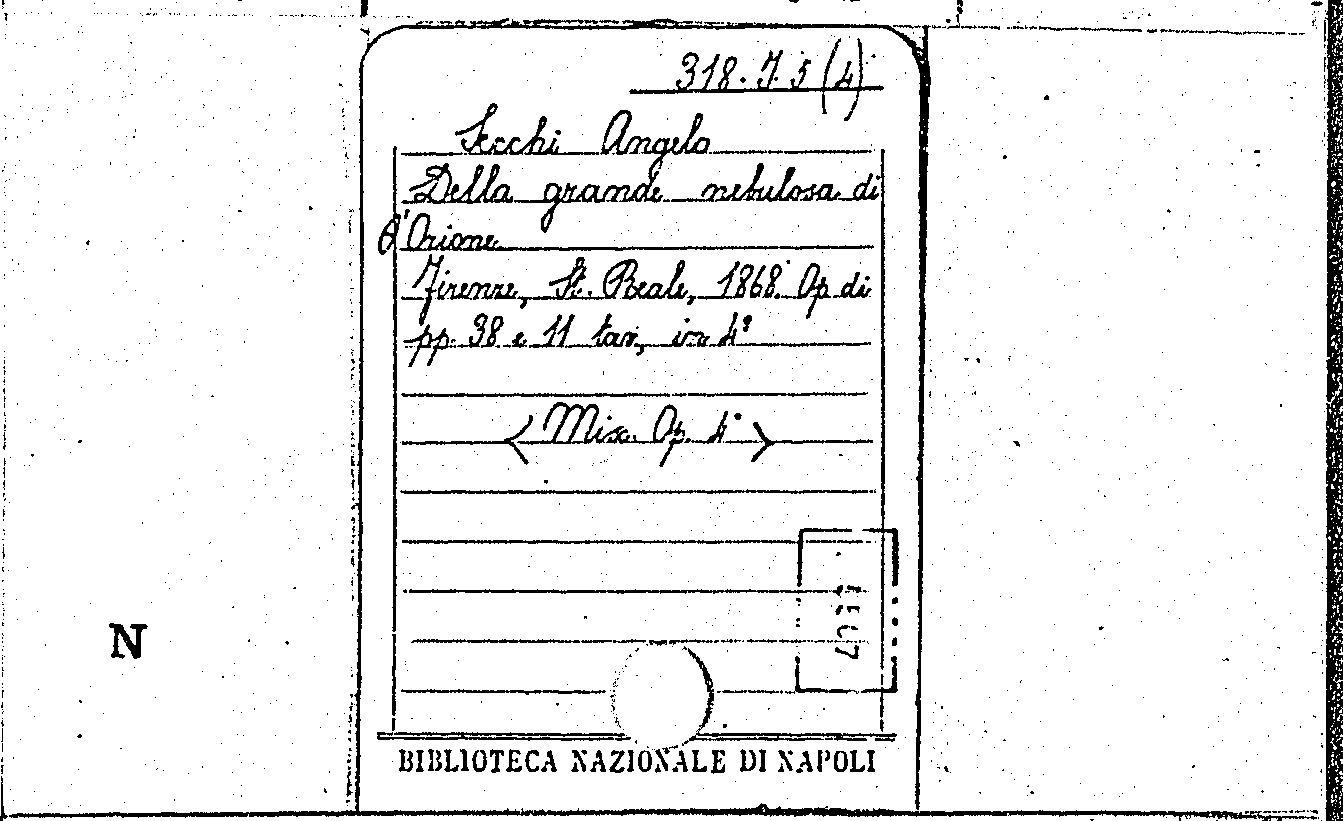 318. J. 5 (4)
Secchi Angelo
Della grande nebulosa di
d'Orione
Firenze, St. Reale, 1868. Op di
pp. 38 e 11 tav, in 4°
< Misc. Op. 4° >
N
BIBLIOTECA NAZIONALE DI NAPOLI